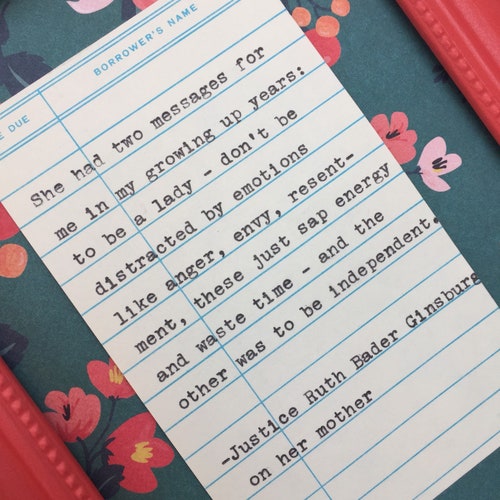 BORROWER'S NAME
E DUE
She had two messages for
me in my growing up years:
to be a lady - don't be
distracted by emotions
like anger, envy, resent-
ment, these just sap energy
and waste time - and the
other was to be independent.
-Justice Ruth Bader Ginsburg
on her mother